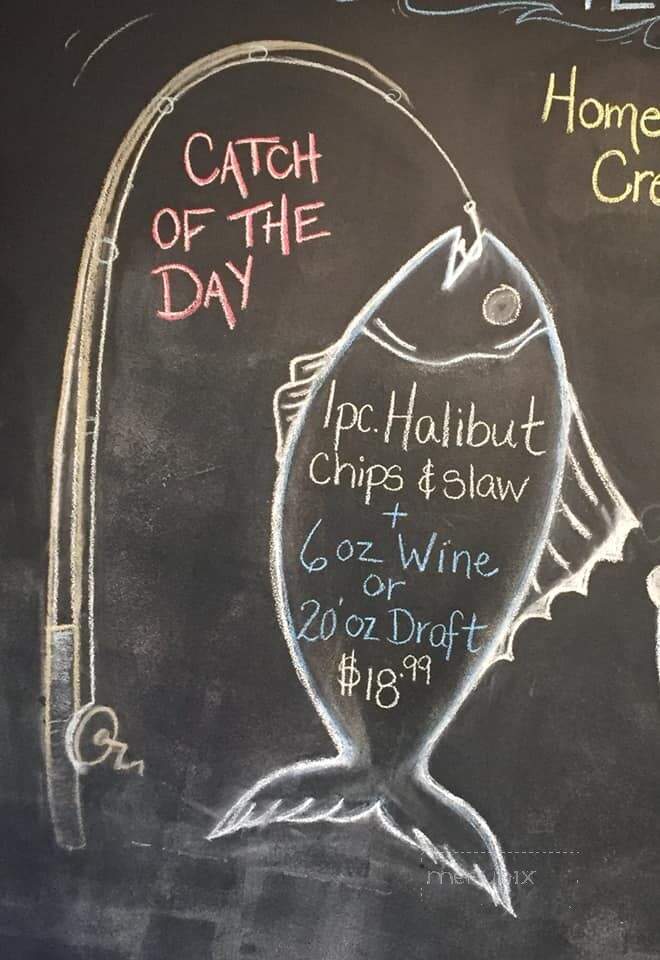 CATCH
OF THE
DAY
Home
Cre
1pc. Halibut
Chips & slaw
+
6 oz Wine
or
20 oz Draft
$18.99
menupix